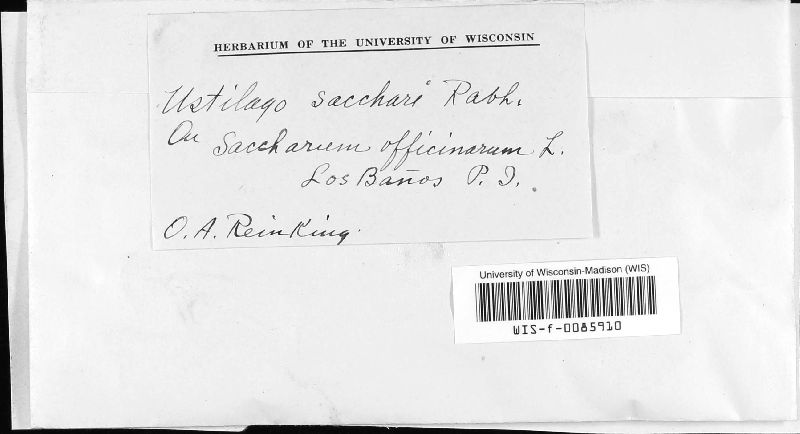 HERBARIUM OF THE UNIVERSITY OF WISCONSIN
Ustilago sacchari Rabh.
On Saccharum officinarum L.
Los Baños P. I.
O. A. Reinking.
University of Wisconsin-Madison (WIS)
WIS-f-0085910